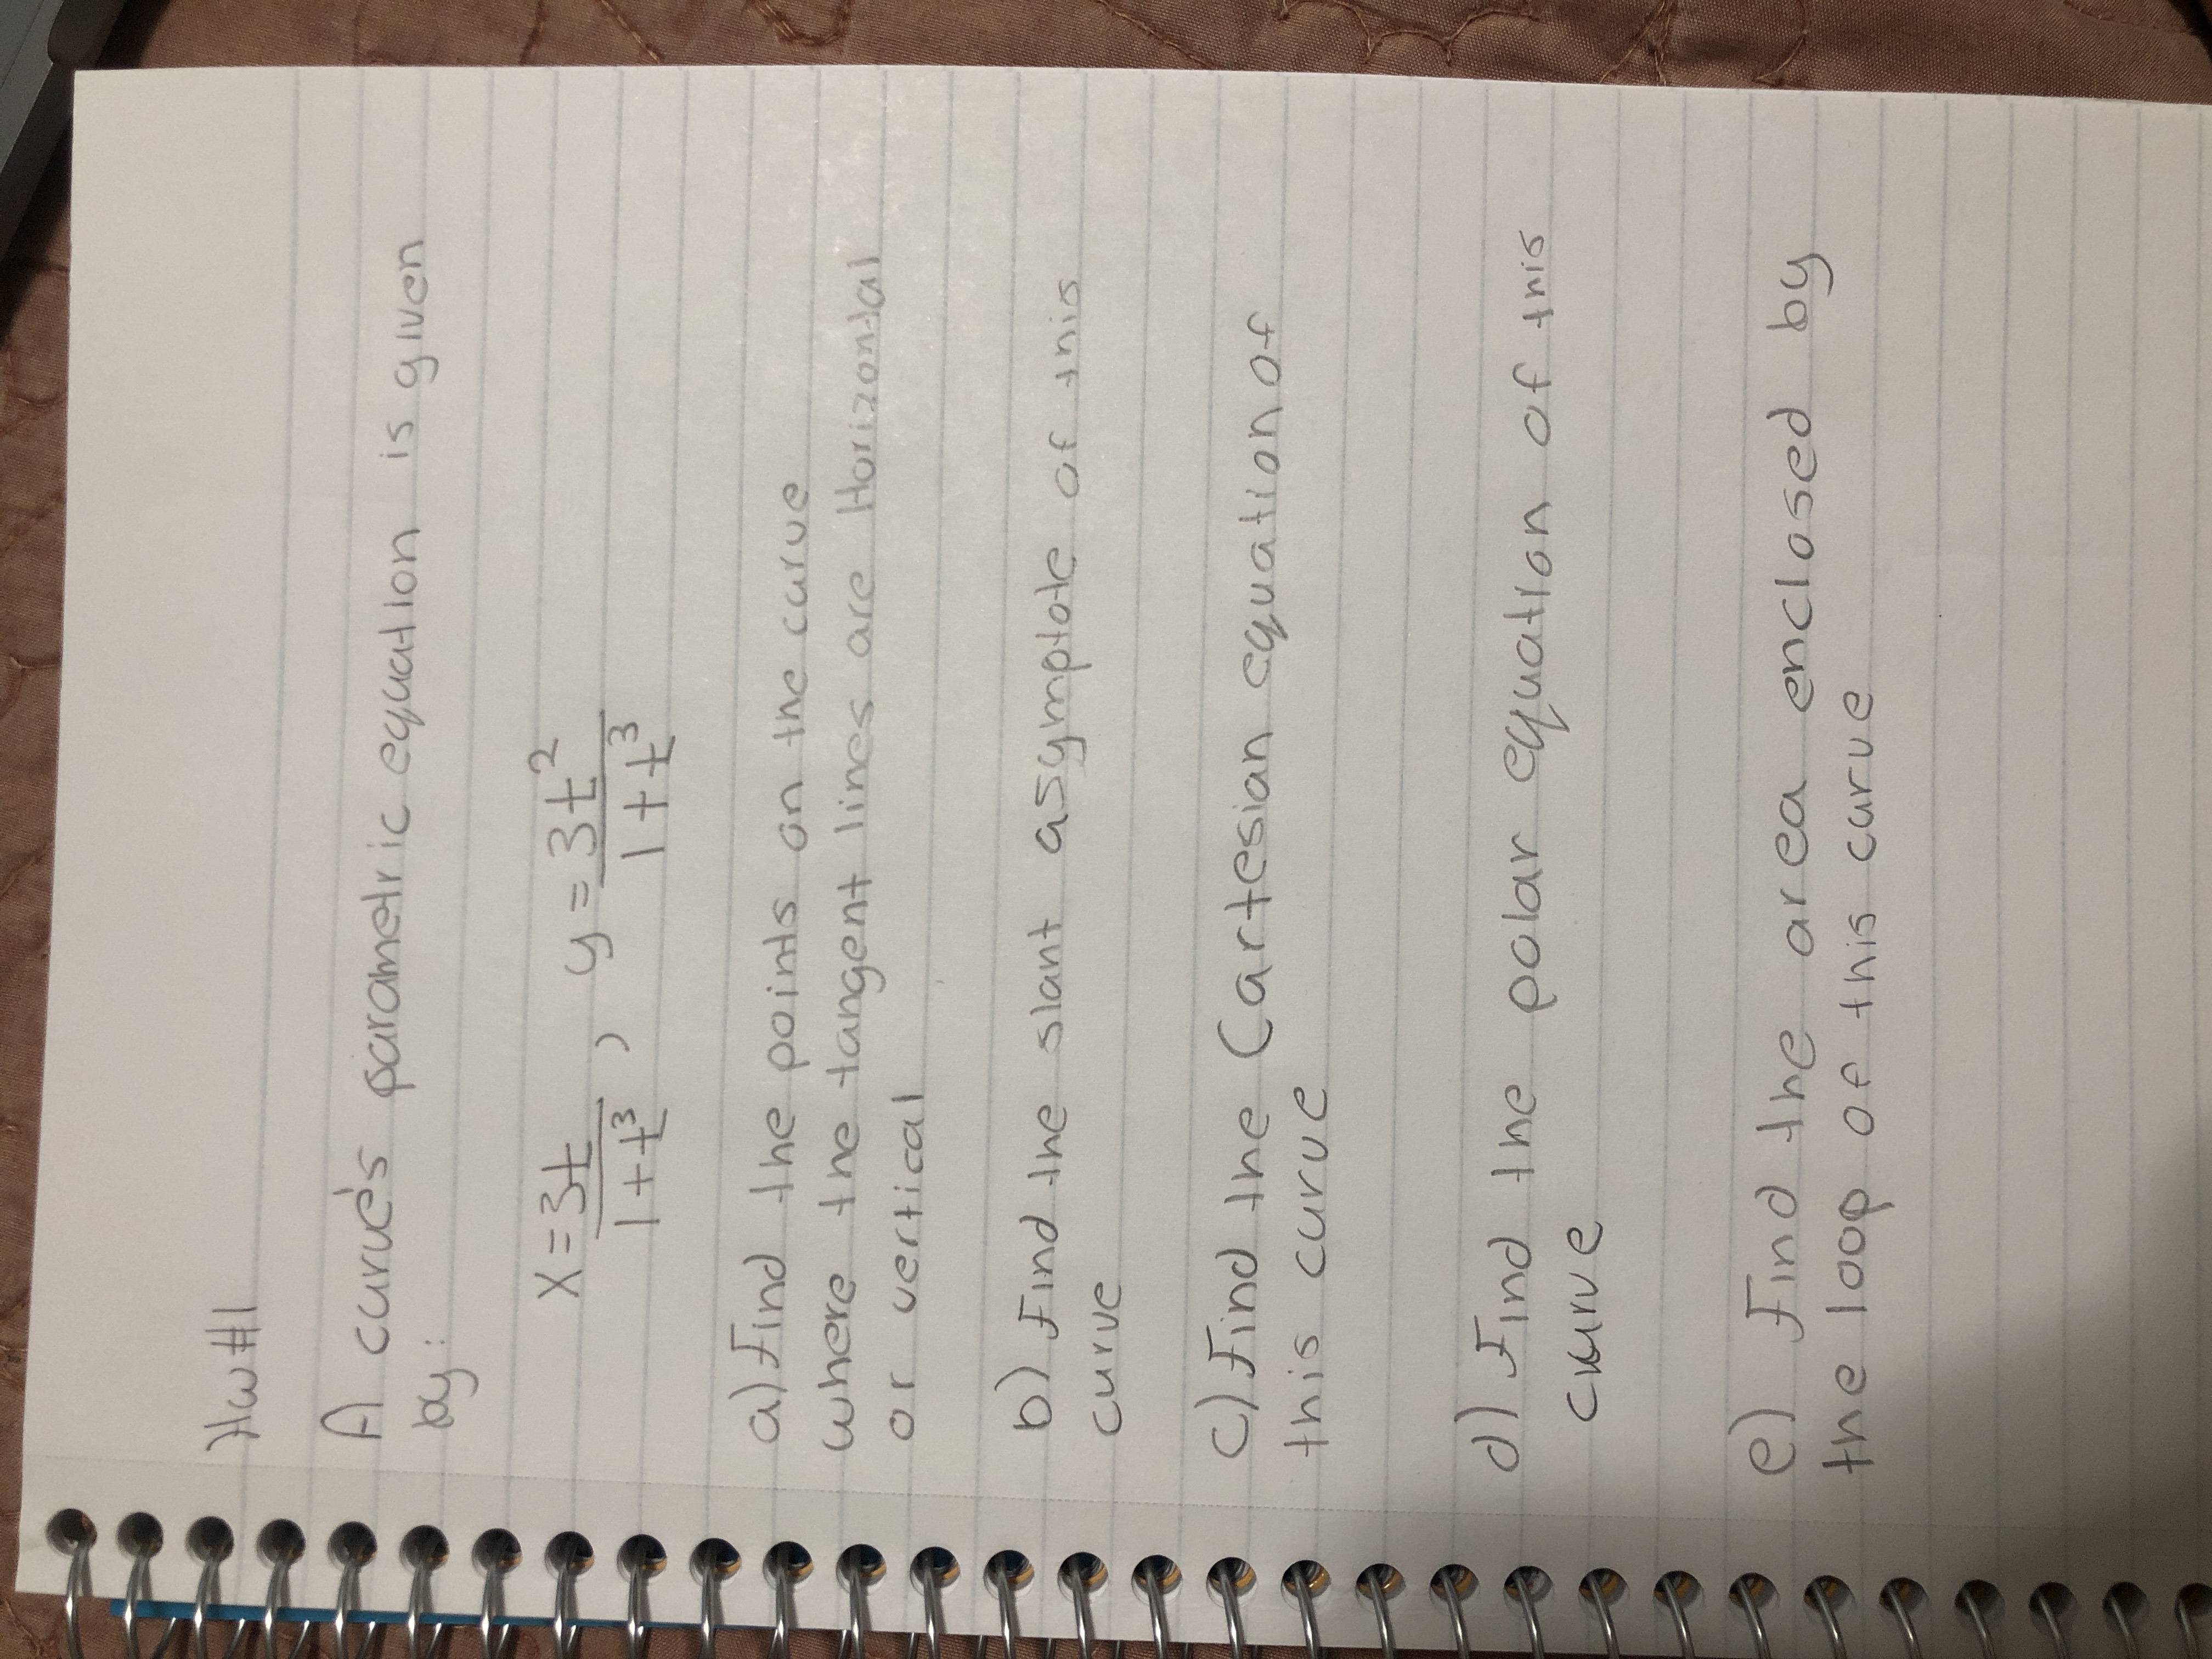 HW#1
A curve's parametric equation is given
by:
x = 3t/(1+t³) , y = 3t²/(1+t³)
a) Find the points on the curve
where the tangent lines are Horizontal
or vertical
b) Find the slant asymptote of this
curve
c) Find the Cartesian equation of
this curve
d) Find the polar equation of this
curve
e) Find the area enclosed by
the loop of this curve